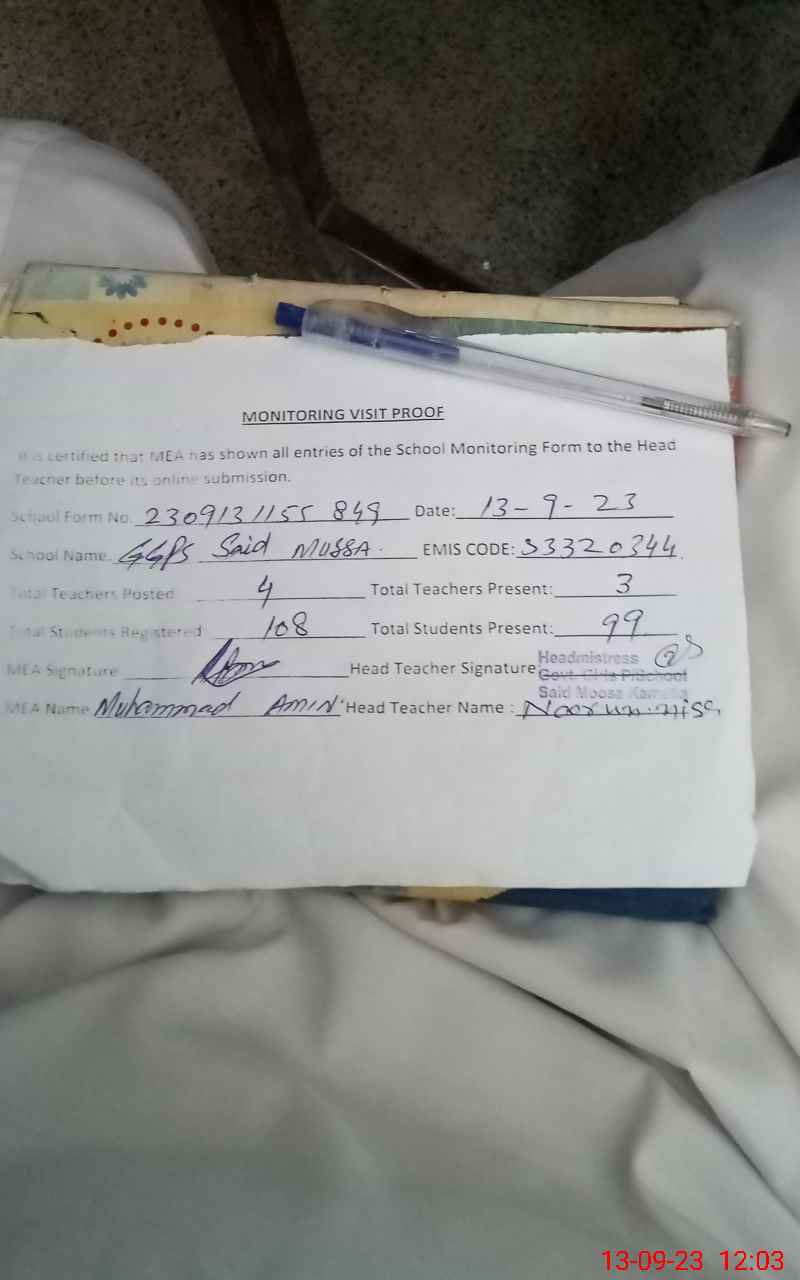 MONITORING VISIT PROOF
It is certified that MEA has shown all entries of the School Monitoring Form to the Head
Teacher before its online submission.
School Form No. 2309131155 849 Date: 13-9-23
School Name GGPS Said MUSSA. EMIS CODE: 33320344
Total Teachers Posted 4 Total Teachers Present: 3
Total Students Registered: 108 Total Students Present: 99
MEA Signature Head Teacher Signature
Headmistress
Govt. Girls P/School
Said Moosa
MEA Name Muhammad AMIN Head Teacher Name : Noor un.nisa
13-09-23 12:03